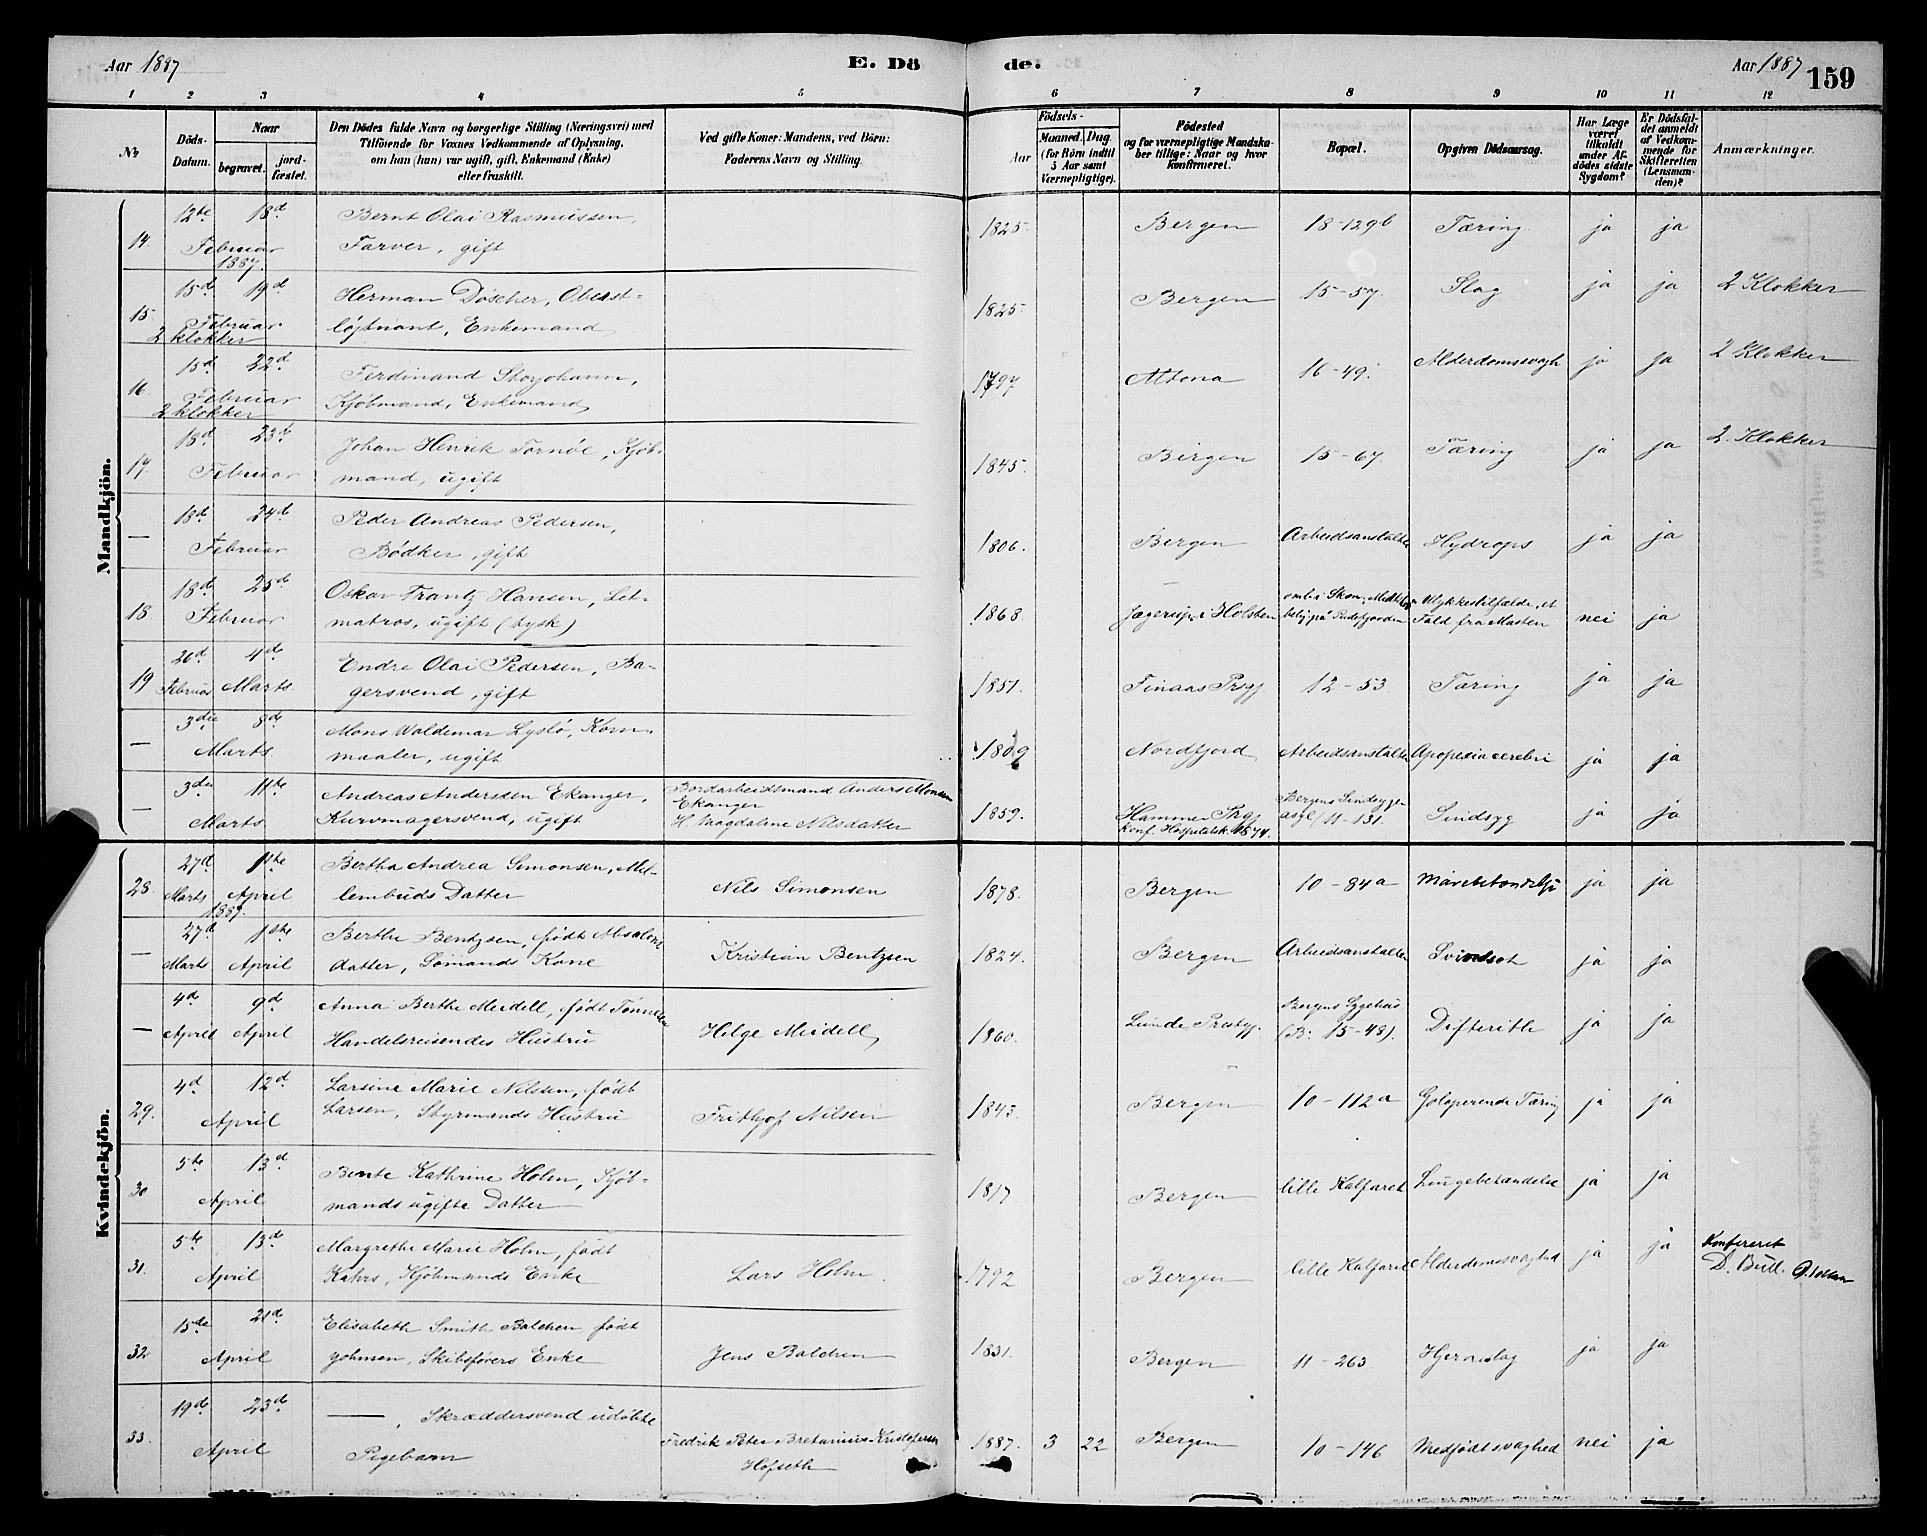 Aar 1887
E. Dö
de.
Aar 1887
159
1 2 3 4 5 6 7 8 9 10 11 12
No.
Döds-Datum.
Naar
begravet.
jord-fæstet.
Den Dödes fulde Navn og borgerlige Stilling (Næringsvei) med
Tilföiende for Voxnes Vedkommende af Oplysning,
om han (hun) var ugift, gift, Enkemand (Enke)
eller fraskilt.
Ved gifte Koner: Mandens, ved Börn:
Faderens Navn og Stilling.
Födsels-
Aar
Maaned. Dag.
(for Börn indtil
5 Aar samt
Værnepligtige).
Födested
og for værnepligtige Mandska-
ber tillige: Naar og hvor
konfirmeret.
Bopæl.
Opgiven Dödsaarsag.
Har Læge
været
tilkaldt
under Af-
dödes sidste
Sygdom?
Er Dödsfal-
det anmeldt
af Vedkom-
mende for
Skifteretten
(Lensman-
den)?
Anmærkninger.
Mandkjön.
14 12te 18d Februar 1887. Bernt Olai Rasmussen,
Farver, gift
1825. Bergen 18-129b Tæring ja ja
15 15d 19d Februar Herman Döscher, Oberst-
löjtnant, Enkemand
2 klokker
1825 Bergen 15-57. Slag ja ja 2 Klokker
16 15d 22d Februar Ferdinand Storjohann,
Kjöbmand, Enkemand
2 klokker
1797 Altona 16-49. Alderdomssvagh ja ja 2 Klokker
17 18d 23d Februar Johan Henrik Tornöe, Kjöb-
mand, ugift
1845. Bergen 15-67 Tæring ja ja 2. Klokker
— 18d 24d Februar Peder Andreas Pedersen,
Bödker, gift
1806. Bergen Arbeidsanstalten Hydrops ja ja
18 18d 25d Februar Oskar Frantz Hansen, Let-
matros, ugift (tysk)
1868. Jægerup i Holsten
Ulykkestilfælde, et
Fald fra Masten nei ja
19 26d Februar 4d Marts. Endre Olai Pedersen, Ba-
gersvend, gift
1851. Finaas Prgj. 12-53 Tæring ja ja
— 3die 8d Marts Mons Waldemar Lyslö, Korn-
maaler, ugift
1809 Nordfjord Arbeidsanstalten Apoplexia cerebri ja ja
— 3die 11te Marts Andreas Anderssen Ekanger,
Kurvmagersvend, ugift
Bordarbeidsmand Anders Monsen
Ekanger
H. Magdalene Nilsdatter
1859. Hammer Prgj
konf. Hospitalsk. 1874.
Bergens Sindssyge-
asyl (11-131. Sindsyg ja ja
Kvindekjön.
28. 27d Marts 1ste April 1887. Bertha Andrea Simonsen, Mel-
lembuds Datter
Nils Simonsen 1878. Bergen 10-84a Mavebetændelse ja ja
— 27d Marts 1ste April Berthe Bentzsen, født Absalons
datter, Sömands Kone
Kristian Bentzsen 1824. Bergen Arbeidsanstalten Svindsot ja ja
— 4d April 9d April Anna Berthe Meidell, født Tönnesen
Handelsreisendes Hustru
Helge Meidell 1860. Lunde Prestgj. Bergens Sygehus
(B: 15-48). Difterith ja ja
29. 4d 12d April Larsine Marie Nilsen, født
Larsen, Styrmands Hustru
Frithjof Nilsen 1843. Bergen 10-112a Galoperende Tæring ja ja
30 5te 13d April Bente Kathrine Holm, Kjöb-
mands ugifte Datter
1817 Bergen lille Kalfaret Lungebetændelse ja ja
31. 5te 13d April Margrethe Marie Holm, født
Kahrs, Kjöbmands Enke
Lars Holm. 1792 Bergen lille Kalfaret Alderdomssvaghed ja ja Konfereret
D. Bull.
32 15de 21d April Elisabeth Smith Balchen født
Johnsen, Skibsförers Enke
Jens Balchen 1831. Bergen 11-263. Hjerneslag ja ja
33. 19de 23d April —, Skræddersvend udöbte
Pigebarn
Fredrik Peter Bretarius Kristofersen
Hofseth
1887. 3 22 Bergen 10-146 Medfödt svaghed nei ja